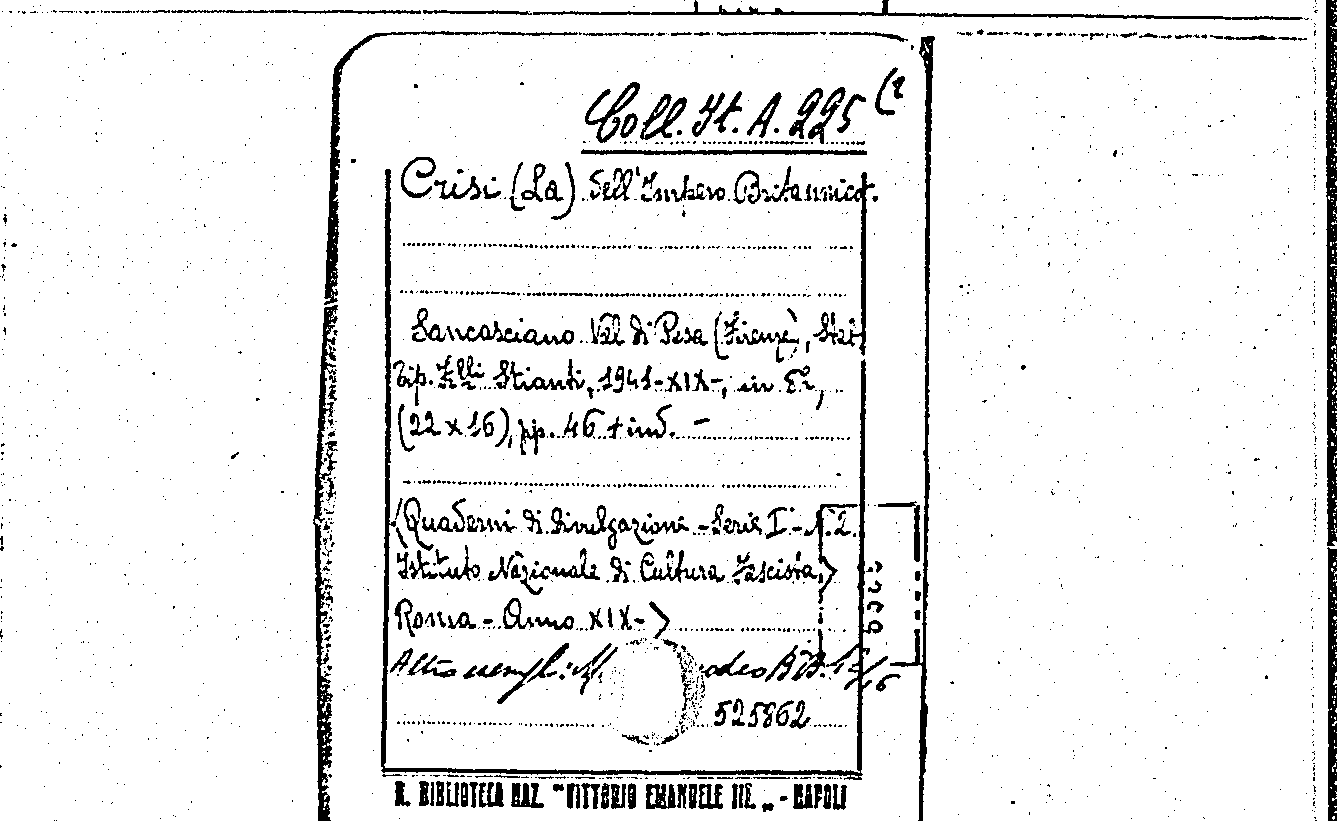 Coll. It. A. 225 (2
Crisi (La) dell'Impero Britannico.
Sancasciano Val di Pesa (Firenze), Stab.
Tip. F.lli Stianti, 1941-XIX-, in 8º,
(22 x 16), pp. 46 + ind. -
(Quaderni di divulgazione - Serie I - N. 2.
Istituto Nazionale di Cultura Fascista,)
Roma - Anno XIX-)
Altro esempl: B.
525862
R. BIBLIOTECA NAZ. "VITTORIO EMANUELE III. „ - NAPOLI